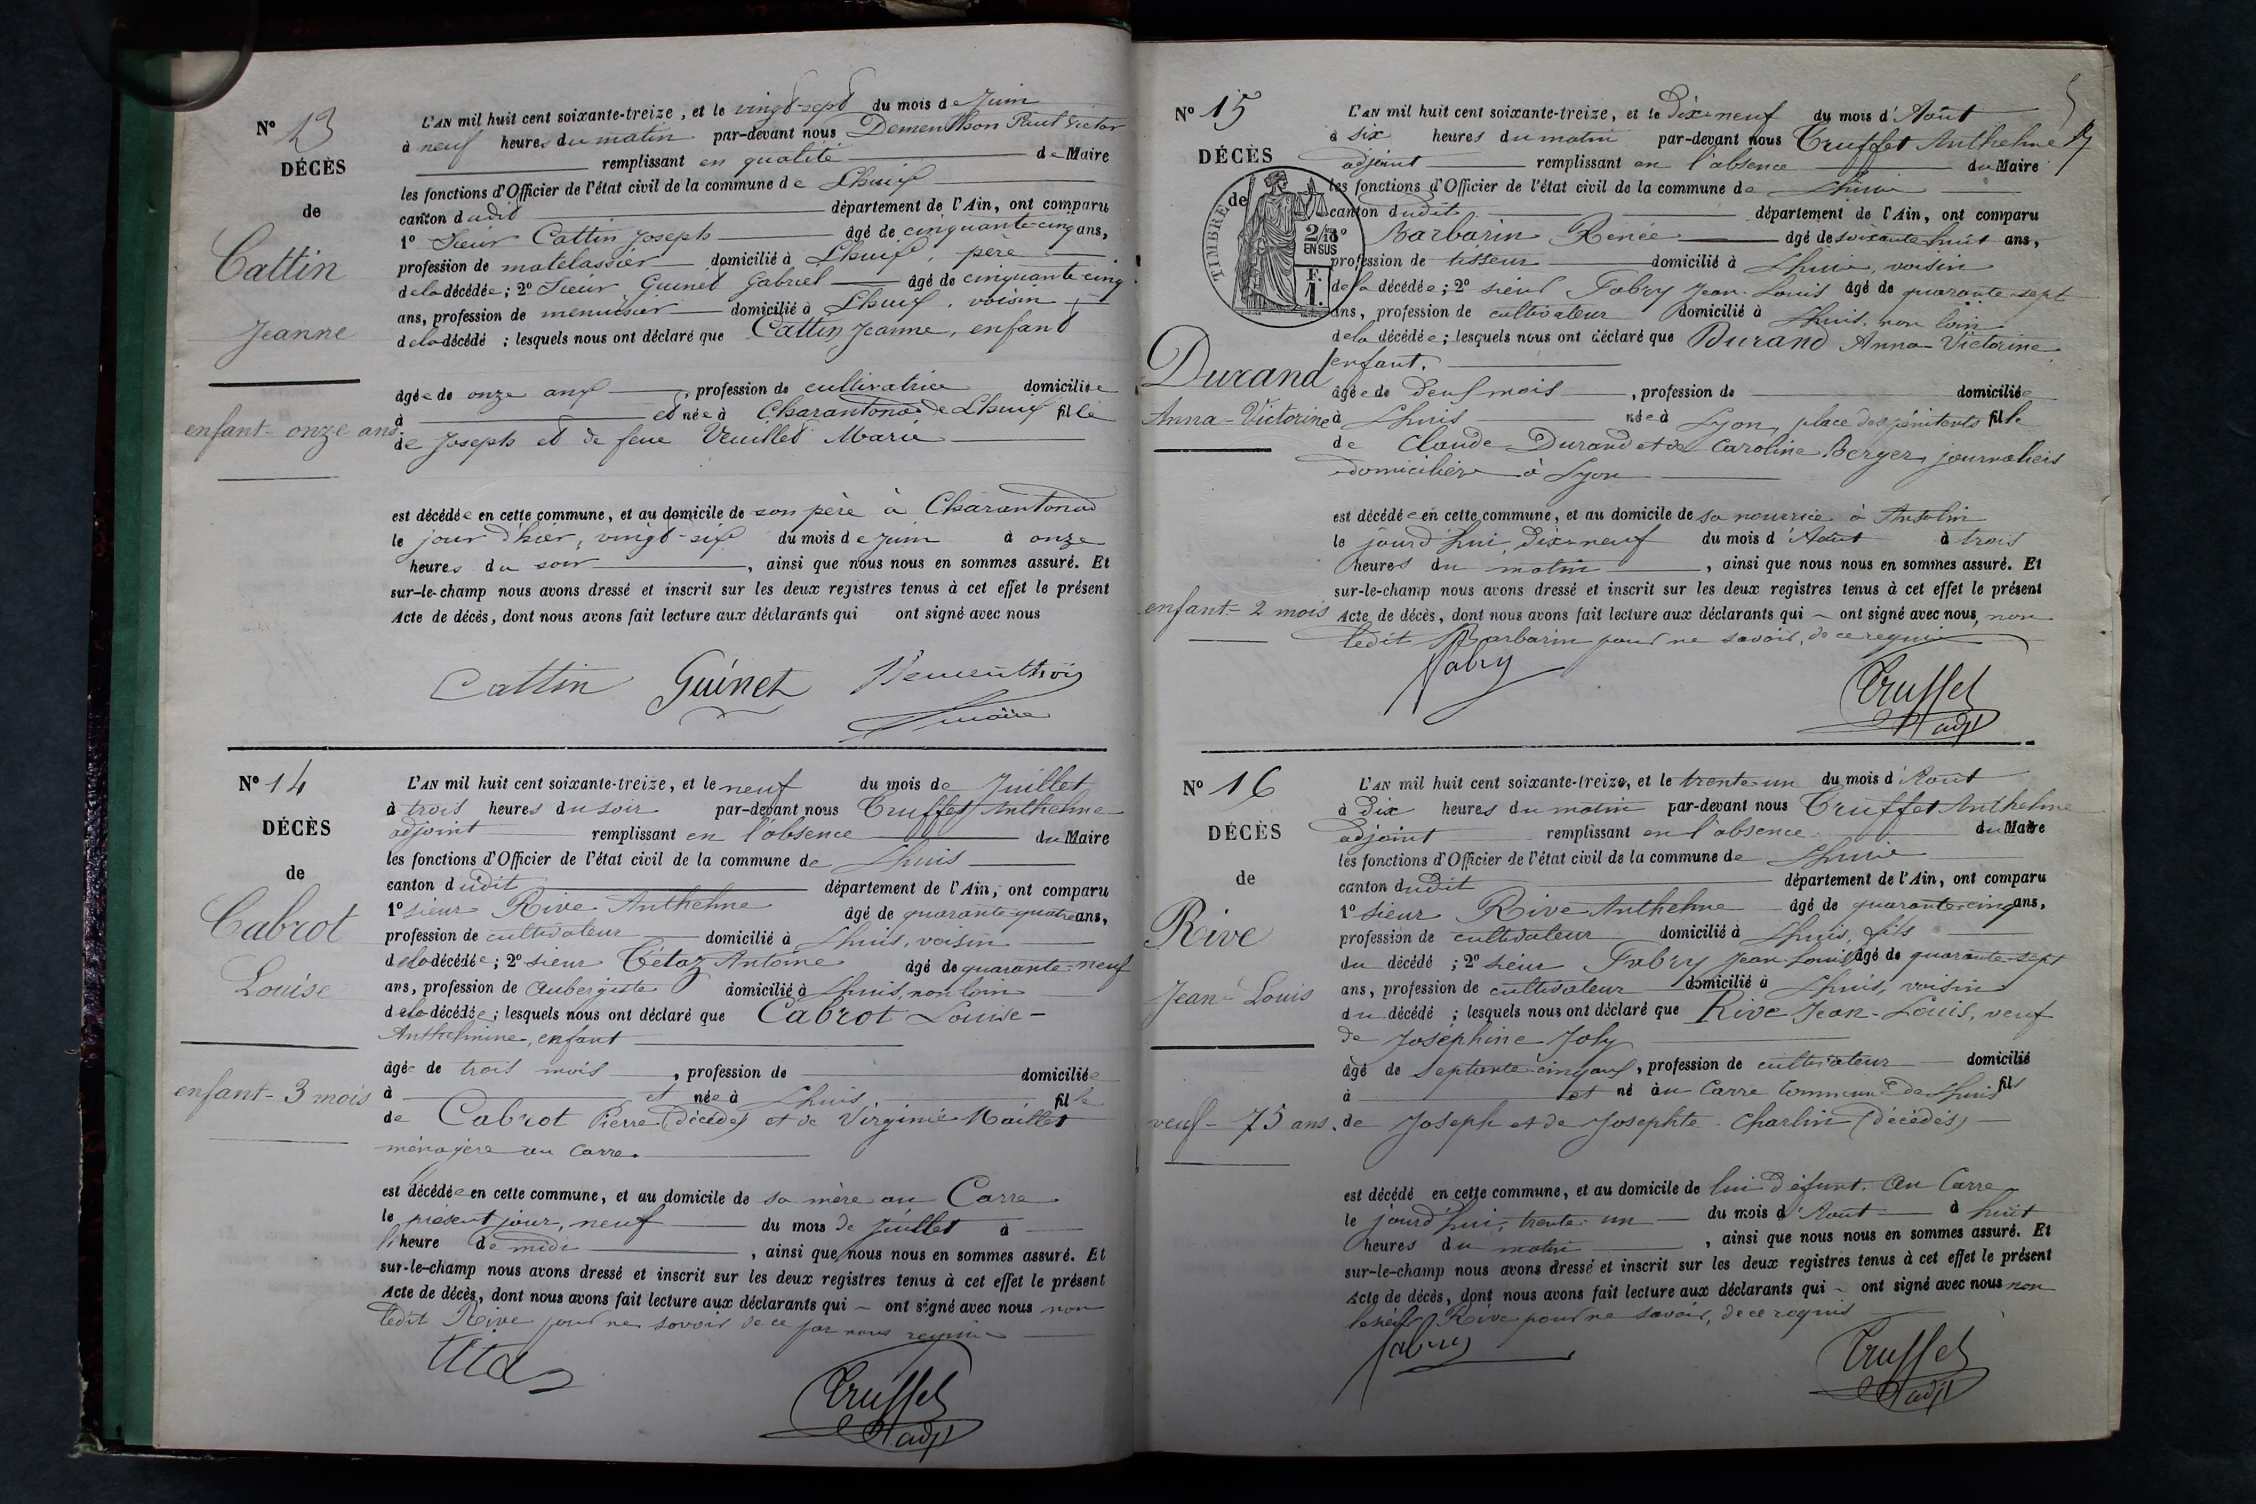 N° 13
DÉCÈS
de
Cattin
Jeanne
enfant - onze ans.
L'AN mil huit cent soixante-treize, et le vingt-sept du mois de Juin
à neuf heures du matin par-devant nous Dementhon Paul Victor
remplissant en qualité de Maire
les fonctions d'Officier de l'état civil de la commune de Lhuis
canton dudit département de l'Ain, ont comparu
1° Sieur Cattin Joseph âgé de cinquante-cinq ans,
profession de matelassier domicilié à Lhuis, père
de la décédée; 2° Sieur Guinet Gabriel âgé de cinquante-cinq
ans, profession de menuisier domicilié à Lhuis, voisin
de la décédé ; lesquels nous ont déclaré que Cattin Jeanne, enfant
âgée de onze ans, profession de cultivatrice domiciliée
à et née à Charantonod de Lhuis fille
de Joseph et de feue Vuillet Marie
est décédée en cette commune, et au domicile de son père à Charantonod
le jour d'hier, vingt-six du mois de Juin à onze
heures du soir, ainsi que nous nous en sommes assuré. Et
sur-le-champ nous avons dressé et inscrit sur les deux registres tenus à cet effet le présent
Acte de décès, dont nous avons fait lecture aux déclarants qui ont signé avec nous
Cattin Guinet Dementhon
maire
N° 14
DÉCÈS
de
Cabrot
Louise
enfant - 3 mois
L'AN mil huit cent soixante-treize, et le neuf du mois de Juillet
à trois heures du soir par-devant nous Truffet Anthelme
adjoint remplissant en l'absence du Maire
les fonctions d'Officier de l'état civil de la commune de Lhuis
canton dudit département de l'Ain, ont comparu
1° sieur Rive Anthelme âgé de quarante-quatre ans,
profession de cultivateur domicilié à Lhuis, voisin
de la décédée; 2° sieur Tétaz Antoine âgé de quarante-neuf
ans, profession de Aubergiste domicilié à Lhuis, non loin
de la décédée; lesquels nous ont déclaré que Cabrot Louise-
Anthelmine, enfant
âgée de trois mois, profession de domiciliée
à et née à Lhuis fille
de Cabrot Pierre (décédé) et de Virginie Maillet
ménagère au Carre.
est décédée en cette commune, et au domicile de sa mère au Carre
le présent jour, neuf du mois de Juillet à
l'heure de midi, ainsi que nous nous en sommes assuré. Et
sur-le-champ nous avons dressé et inscrit sur les deux registres tenus à cet effet le présent
Acte de décès, dont nous avons fait lecture aux déclarants qui ~ ont signé avec nous non
ledit Rive pour ne savoir de ce par nous requis
Truffet
adjt
N° 15
DÉCÈS
de
TIMBRE
2/10
EN SUS
F.
1.
Durand
Anna-Victorine
enfant - 2 mois
L'AN mil huit cent soixante-treize, et le Dix-neuf du mois d'Août
à six heures du matin par-devant nous Truffet Anthelme
adjoint remplissant en l'absence du Maire
les fonctions d'Officier de l'état civil de la commune de Lhuis
canton dudit département de l'Ain, ont comparu
Barbarin René âgé de soixante-huit ans,
profession de tisseur domicilié à Lhuis, voisin
de la décédée; 2° sieur Fabry Jean-Louis âgé de quarante-sept
ans, profession de cultivateur domicilié à Lhuis, non loin
de la décédée; lesquels nous ont déclaré que Durand Anna-Victorine
enfant.
âgée de Deux mois, profession de domiciliée
à Lhuis née à Lyon, place des pénitents fille
de Claude Durand et de Caroline Berger journaliers
domiciliés à Lyon
est décédée en cette commune, et au domicile de sa nourrice à Ansolin
le jourd'hui, Dix-neuf du mois d'Août à trois
heures du matin, ainsi que nous nous en sommes assuré. Et
sur-le-champ nous avons dressé et inscrit sur les deux registres tenus à cet effet le présent
Acte de décès, dont nous avons fait lecture aux déclarants qui ~ ont signé avec nous, non
ledit Barbarin pour ne savoir, de ce requis
Fabry
Truffet
adjt
N° 16
DÉCÈS
de
Rive
Jean-Louis
veuf - 75 ans.
L'AN mil huit cent soixante-treize, et le trente-un du mois d'Août
à Dix heures du matin par-devant nous Truffet Anthelme
adjoint remplissant en l'absence du Maire
les fonctions d'Officier de l'état civil de la commune de Lhuis
canton dudit département de l'Ain, ont comparu
1° sieur Rive Anthelme âgé de quarante-cinq ans,
profession de cultivateur domicilié à Lhuis, fils
du décédé ; 2° sieur Fabry Jean-Louis âgé de quarante-sept
ans, profession de cultivateur domicilié à Lhuis, voisin
du décédé ; lesquels nous ont déclaré que Rive Jean-Louis, veuf
de Joséphine Joly
âgé de Septante-cinq ans, profession de cultivateur domicilié
à et né au Carre Commune de Lhuis fils
de Joseph et de Josephte Charlin (décédés)
est décédé en cette commune, et au domicile de lui défunt. Au Carre
le jourd'hui, trente-un du mois d'Août à huit
heures du matin, ainsi que nous nous en sommes assuré. Et
sur-le-champ nous avons dressé et inscrit sur les deux registres tenus à cet effet le présent
Acte de décès, dont nous avons fait lecture aux déclarants qui ~ ont signé avec nous non
Rive pour ne savoir, de ce requis
Fabry
Truffet
adjt